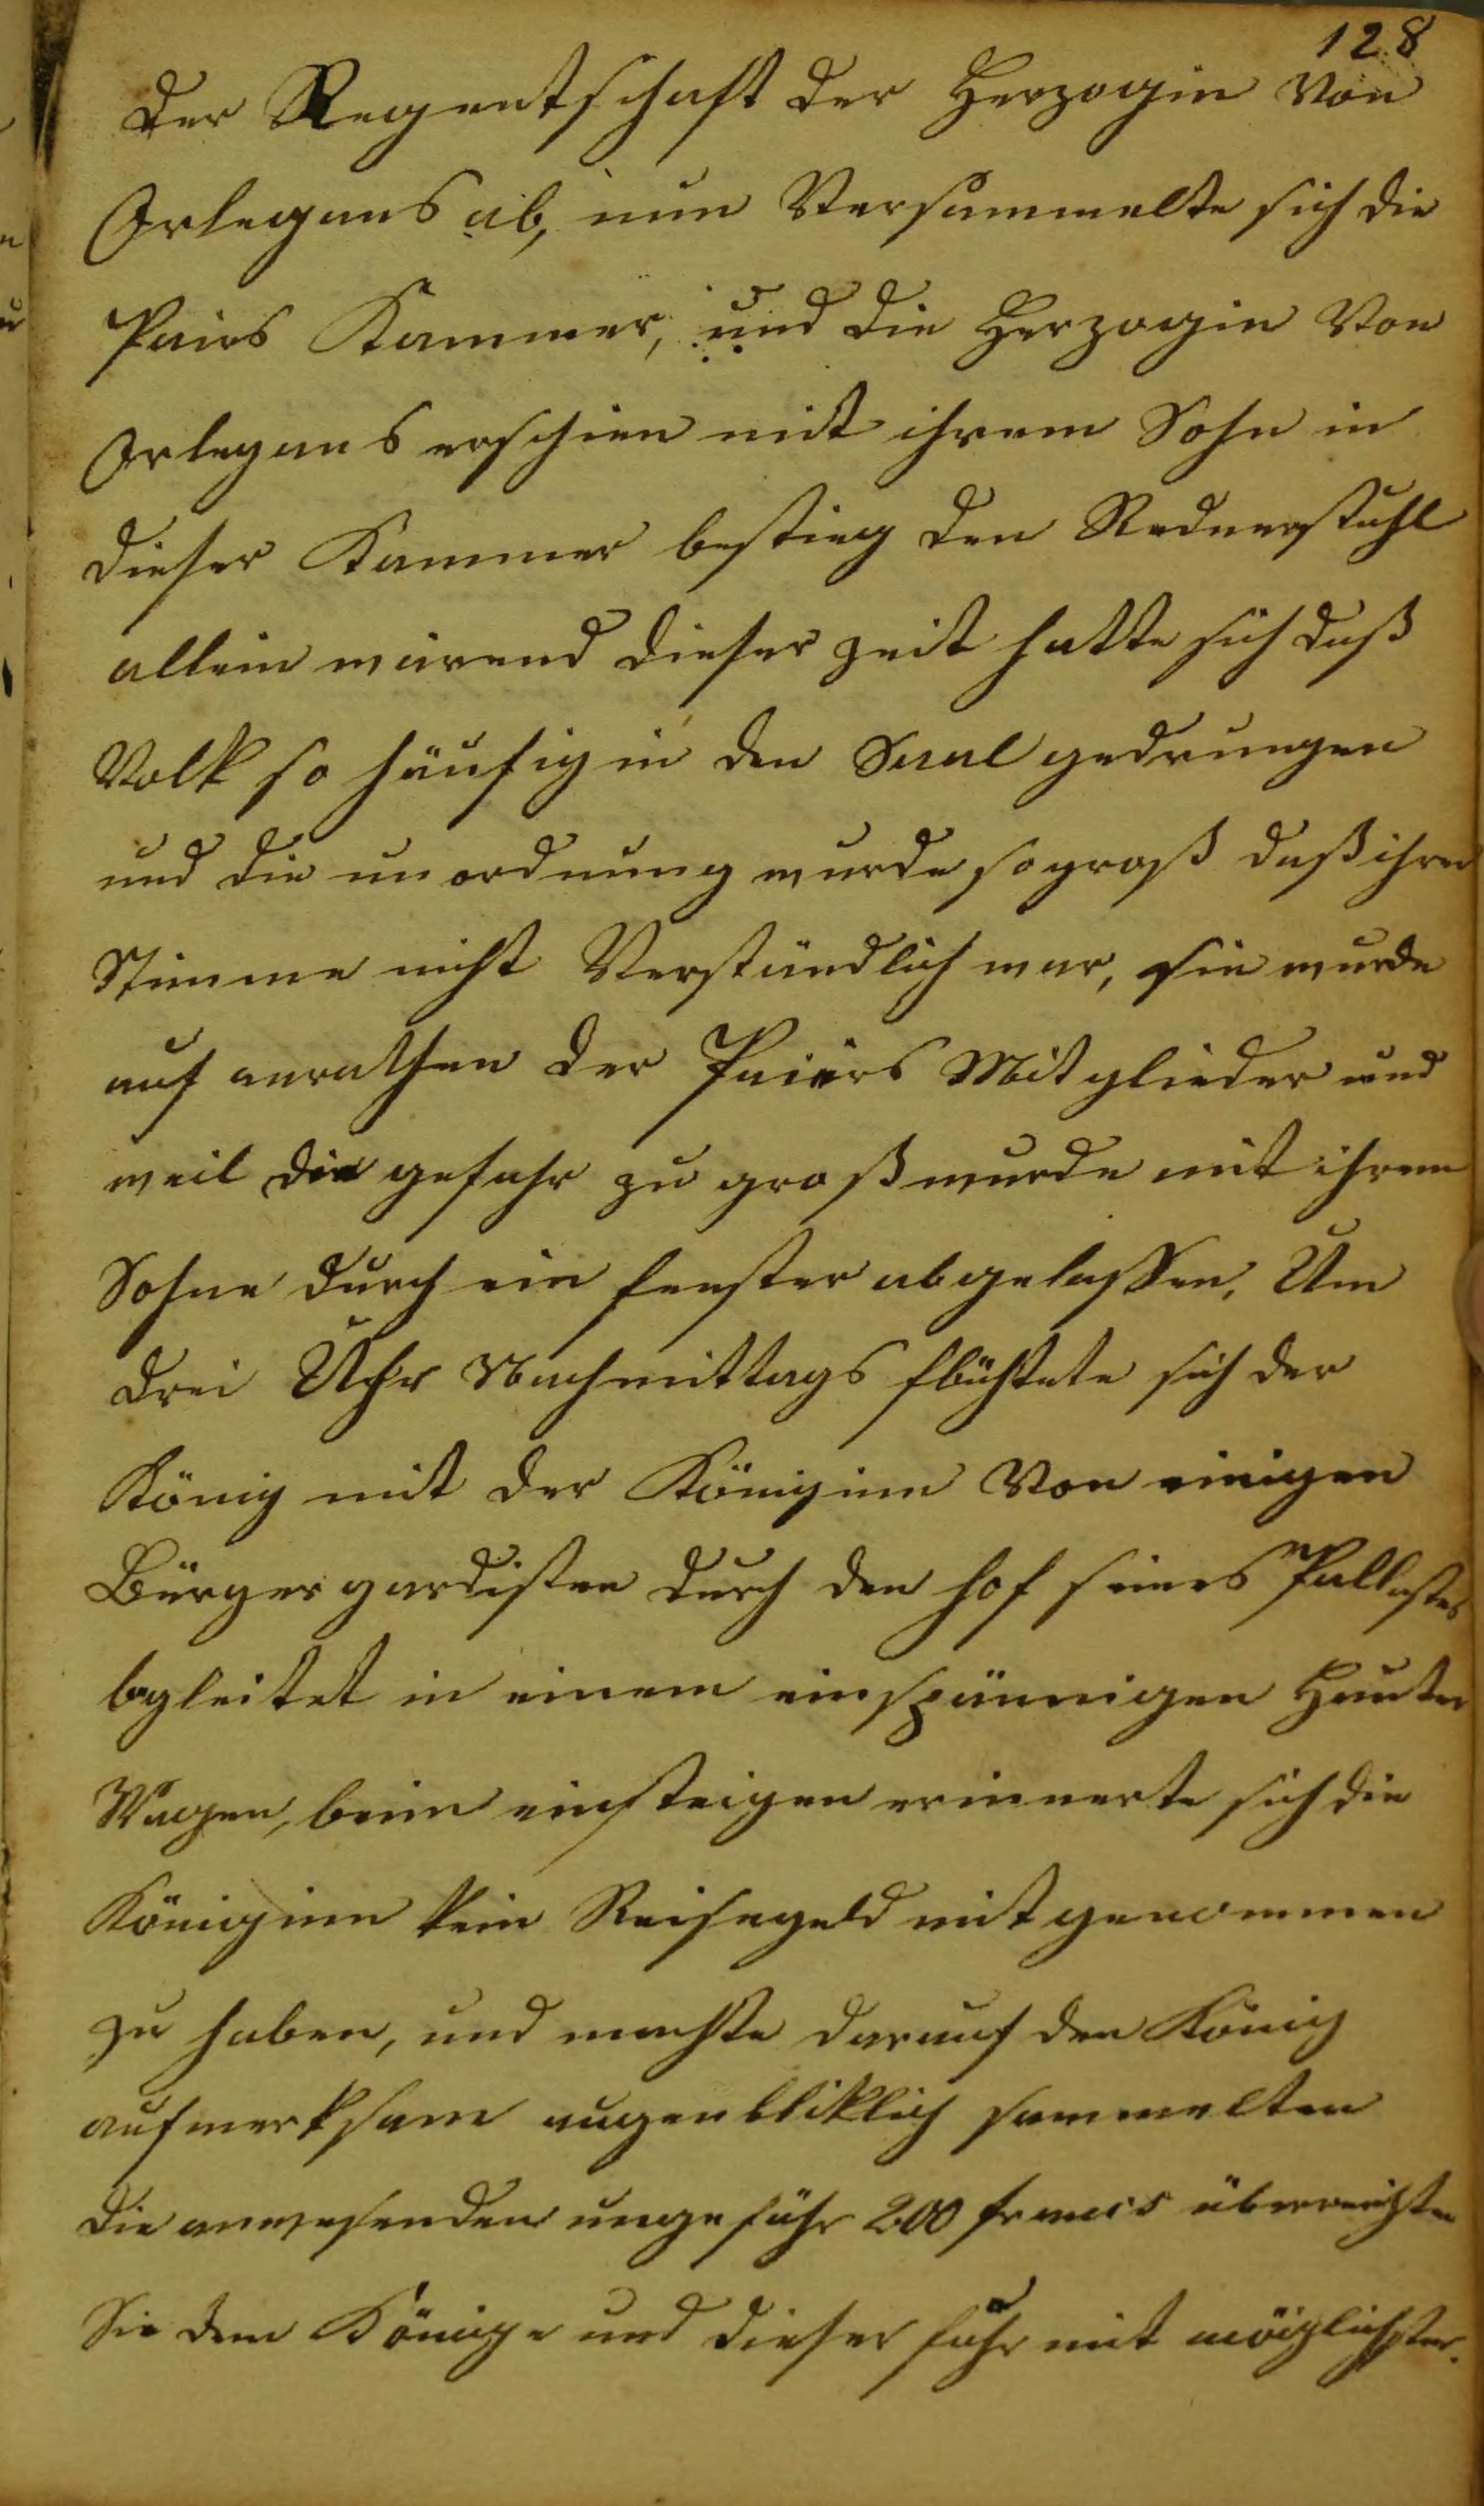 128
der Regentschaft der Herzogin Von
Orlegans ab, nun Versammelte sich die
Pairs Kammer, und die Herzogin Von
Orlegans erschien mit ihrem Sohn in
dieser Kammer bestieg den Rednerstuhl
allein wärend dieser zeit hatte sich daß
Volk so häufig in den Saal gedrungen
und die unordnung wurde so groß daß ihre
Stimme nicht Verständlich war, sie wurde
auf anrathen der Paiirs Mitglieder und
weil die gefahr zu groß wurde mit ihrem
Sohne durch ein fenster abgelassen. Um
drei Uhr Nachmittags flüchtete sich der
König mit der Königinn Von einigen
Bürgergardisten durch den hof seines Pallastes
begleitet in einem einspännigen
Wagen, beim einsteigen erinnerte sich die
Königinn kein Reisegeld mitgenommen
zu haben, und machte darauf den König
aufmerksam augenbliklich sammelten
die anwesenden ungefähr 200 francs überreichten
Sie dem Könige und dieser fuhr mit möiglichster.